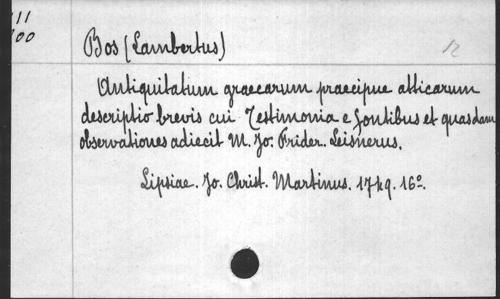 111
100
Bos (Lambertus)
12
Antiquitatium graecarum praecipue atticarum
descriptio brevis cui Testimonia e fontibus et quasdam
observationes adiecit M. Jo. Frider. Leisnerus.
Lipsiae. Jo. Christ. Martinus. 1749. 16º.